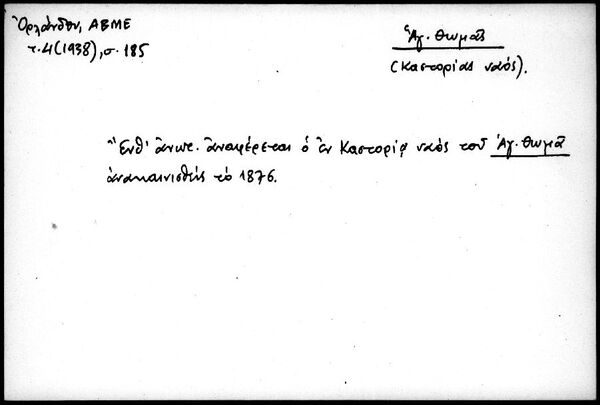 Ὀρλάνδου, ΑΒΜΕ
τ.4(1938), σ. 185
Ἁγ. Θωμᾶς
(Καστορίας ναός).
Ἔνθ' ἄνωτ. ἀναφέρεται ὁ ἐν Καστορίᾳ ναός τοῦ Ἁγ. Θωμᾶ
ἀνακαινισθείς τό 1876.